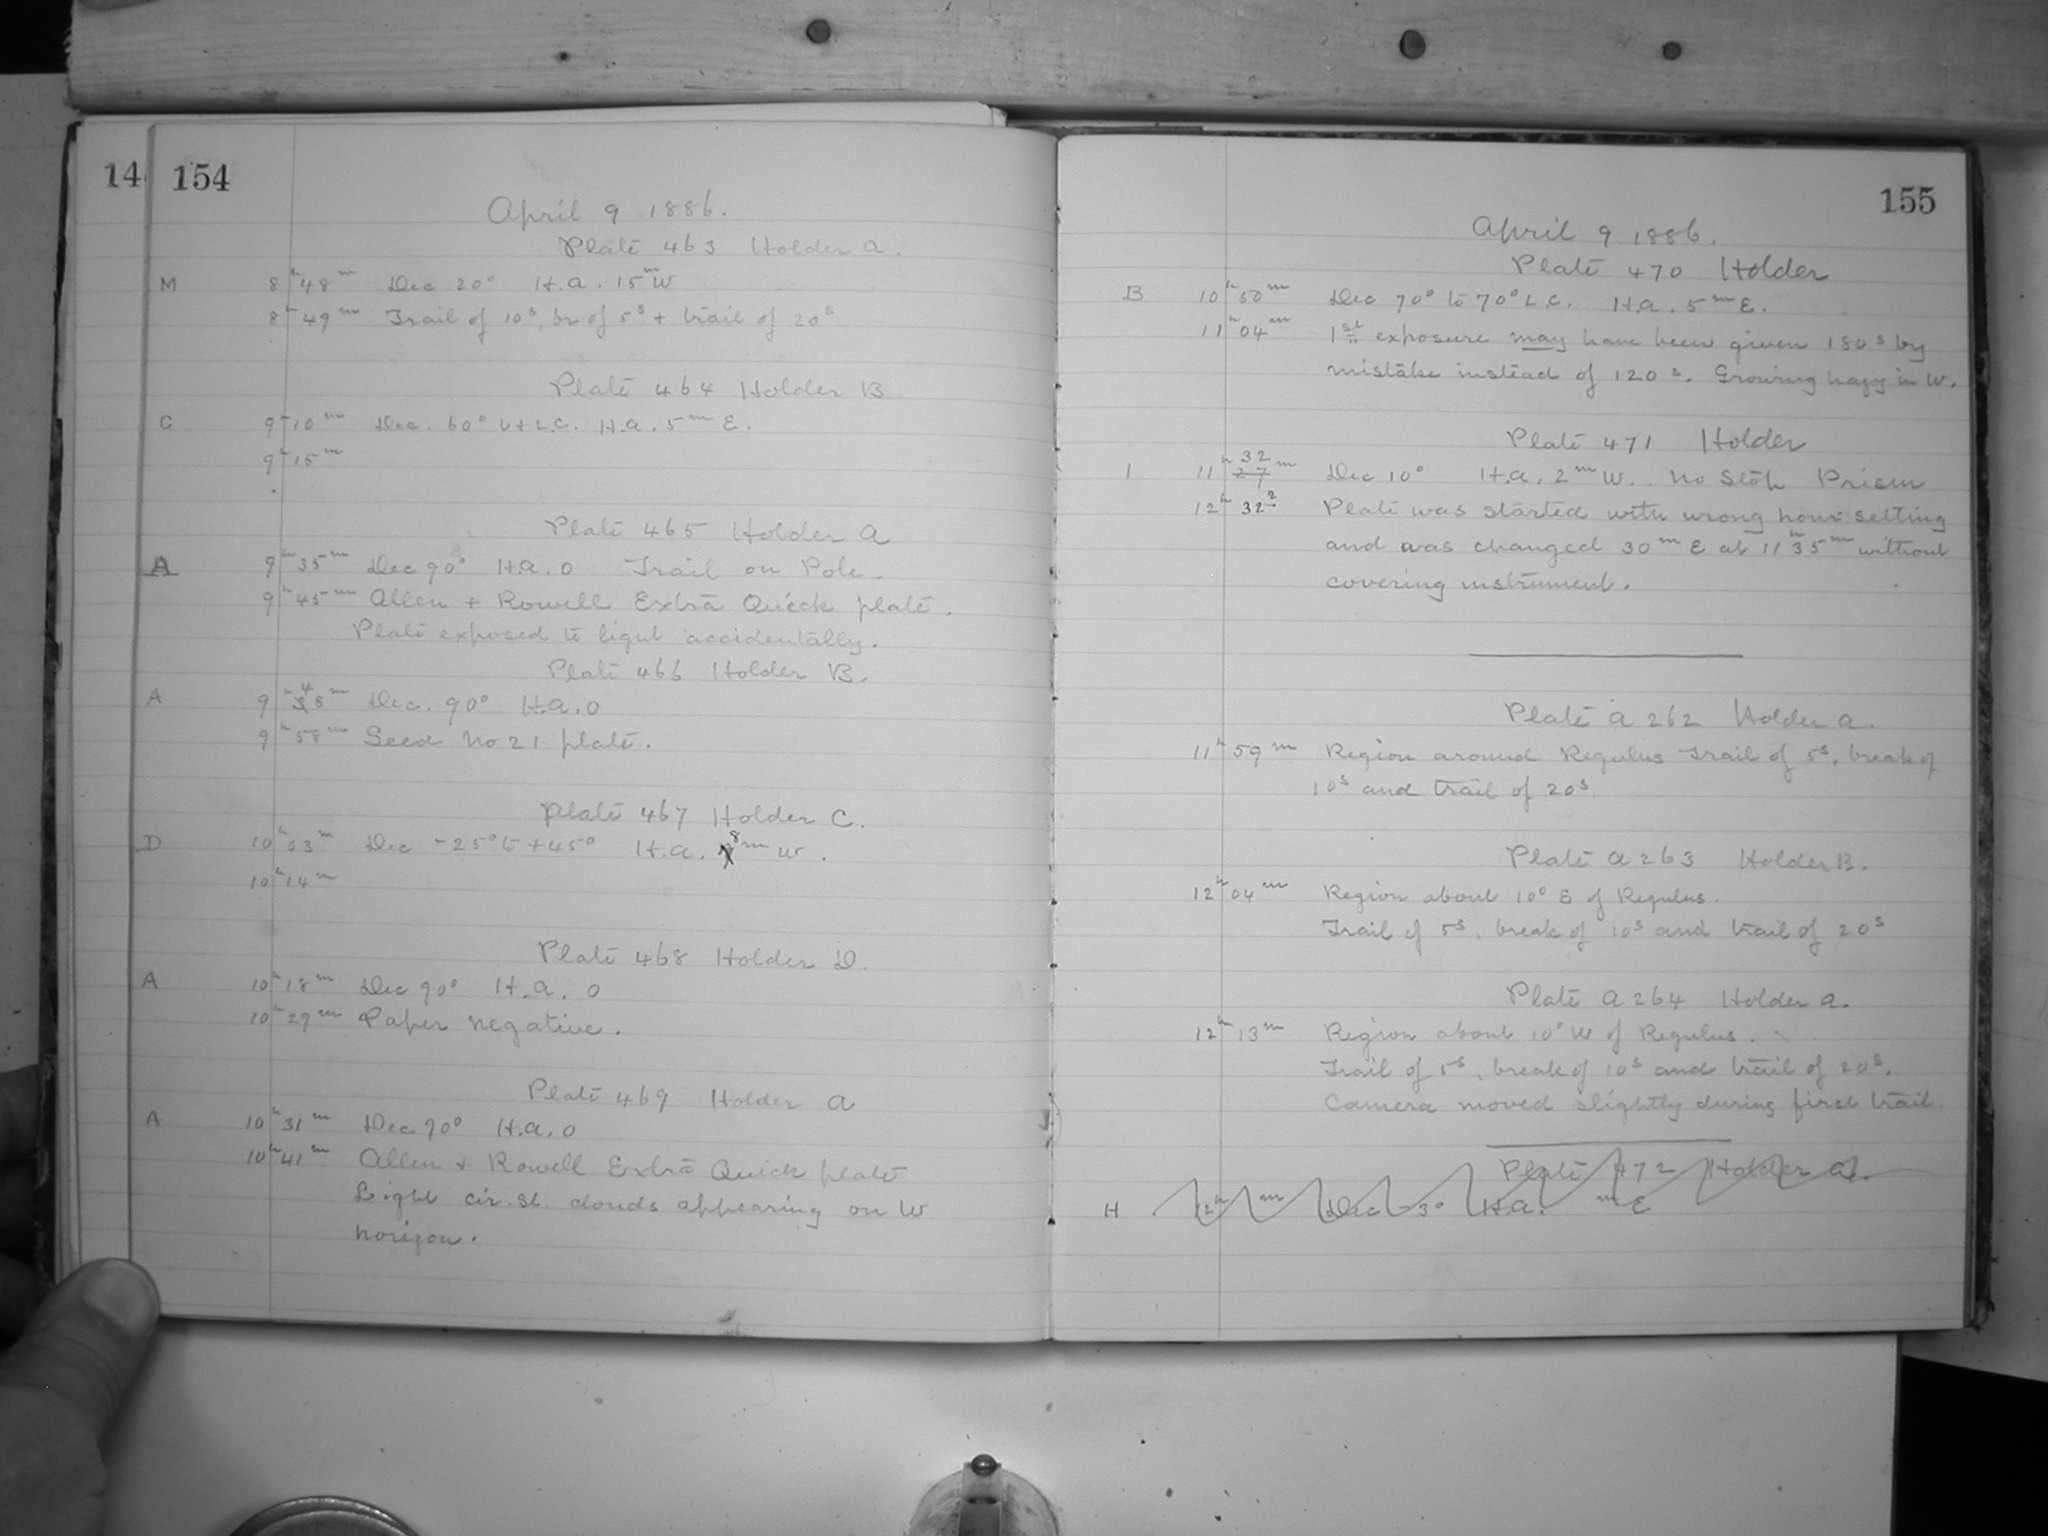 14
154
April 9 1886.
Plate 463 Holder a.
M 8h 48m Dec 20° H.a. 15m W
8h 49m Trail of 10s, br. of 5s + trail of 20s
Plate 464 Holder B
C 9h 10m Dec. 60° U + L.C. H.a. 5m E.
9h 15m
Plate 465 Holder a
A 9h 35m Dec 90° H.a. 0 Trail on Pole.
9h 45m Allen + Rowell Extra Quick plate.
Plate exposed to light accidentally.
Plate 466 Holder B.
A 9h 48m Dec. 90° H.a. 0
9h 58m Seed No 21 plate.
Plate 467 Holder C.
D 10h 03m Dec -25° to +45° H.a. 8m W.
10h 14m
Plate 468 Holder D.
A 10h 18m Dec 90° H.a. 0
10h 29m Paper negative.
Plate 469 Holder a
A 10h 31m Dec 90° H.a. 0
10h 41m Allen + Rowell Extra Quick plate
Light cir. st. clouds appearing on W
horizon.
155
April 9 1886.
Plate 470 Holder
B 10h 50m Dec 70° to 70° L.C. H.a. 5m E.
11h 04m 1st exposure may have been given 180s by
mistake instead of 120s. Growing hazy in W.
Plate 471 Holder
32
I 11h 27m Dec 10° H.a. 2m W. No Stop Prism
12h 32? Plate was started with wrong hour setting
and was changed 30m E at 11h 35m without
covering instrument.
Plate a 262 Holder a.
11h 59m Region around Regulus Trail of 5s, break of
10s and trail of 20s
Plate a 263 Holder B.
12h 04m Region about 10° E of Regulus.
Trail of 5s, break of 10s and trail of 20s
Plate a 264 Holder a.
12h 13m Region about 10° W of Regulus.
Trail of 5s, break of 10s and trail of 20s.
Camera moved slightly during first trail
Plate 472 Holder a.
H 12h m Dec -30 H.a. m E